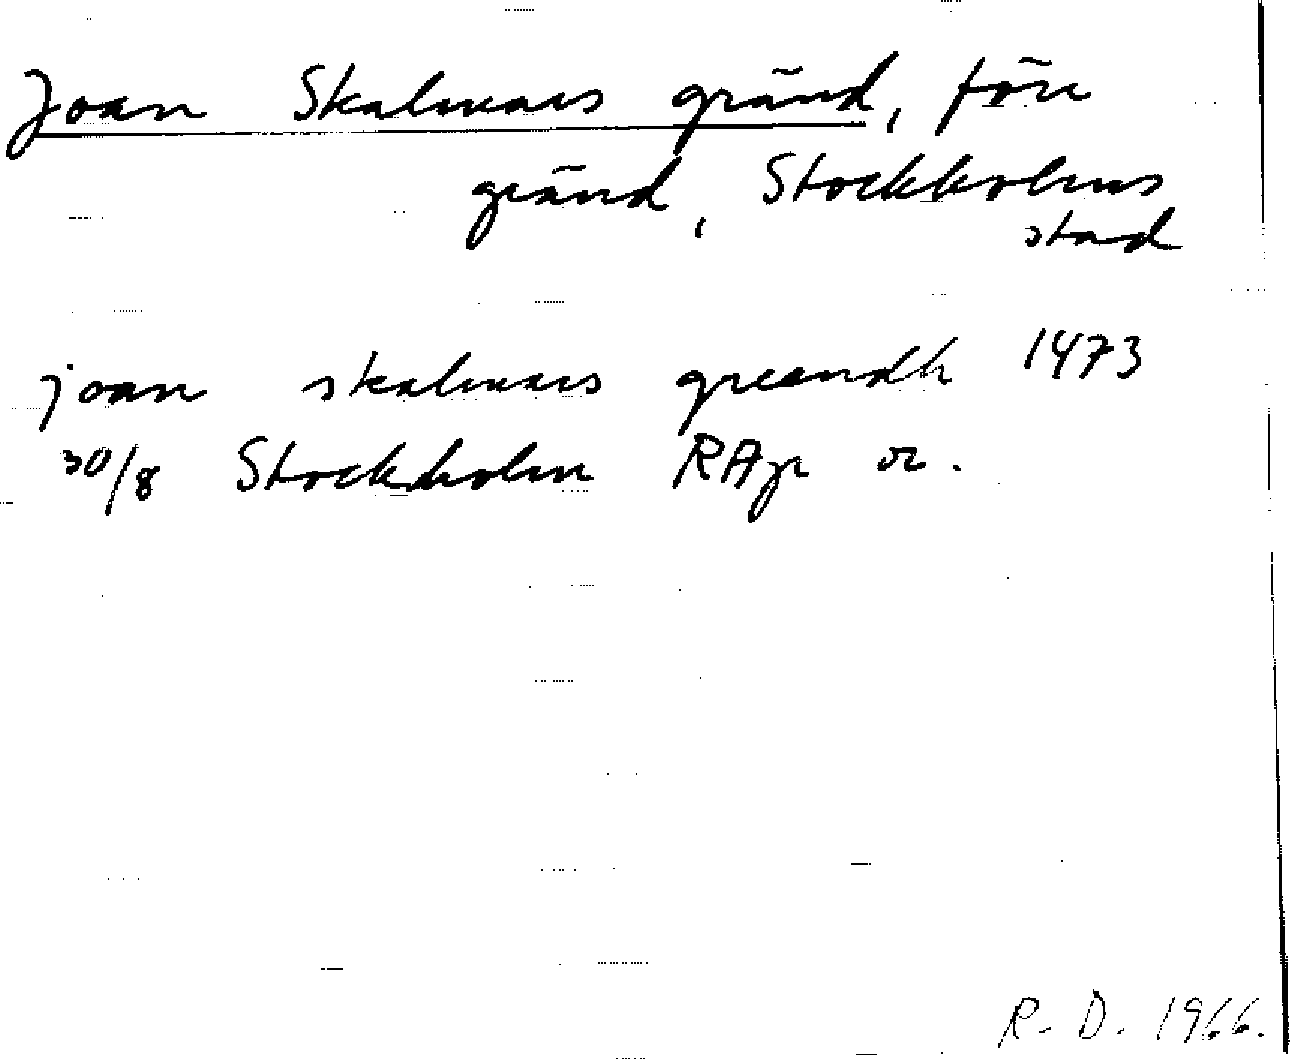 Joan Skalmars gränd, förr
gränd, Stockholms
stad
joan skalmars greandh 1473
30/8 Stockholm RAp or.
R. D. 1966.